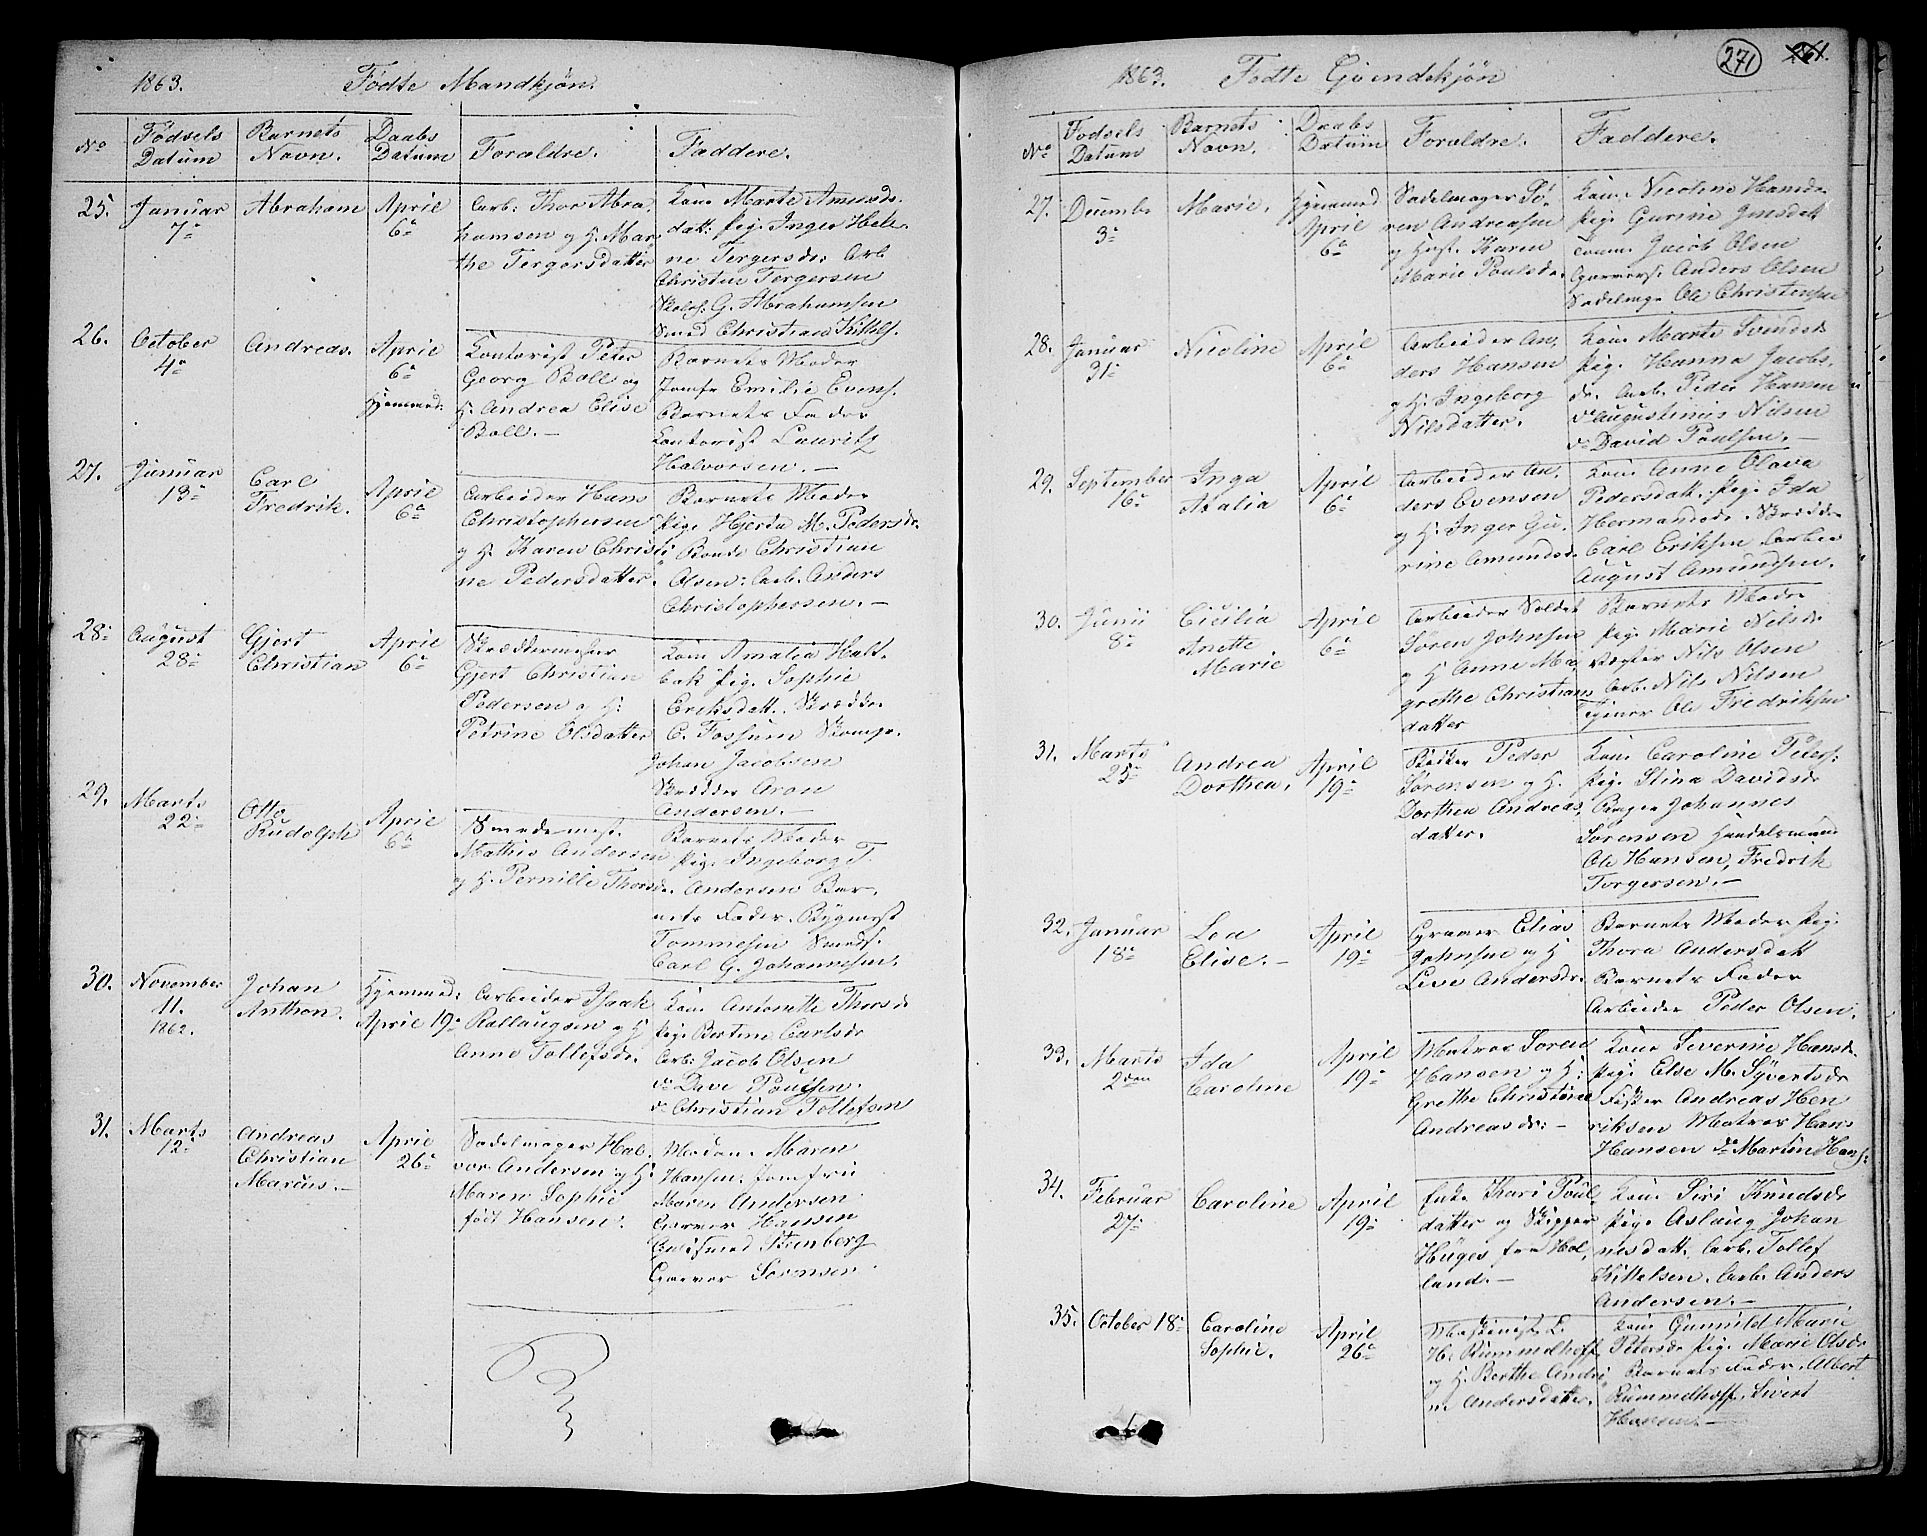 1863. Fødte Mandkjøn.
No Fødsels Datum Barnets Navn. Daabs Datum Forældre. Faddere.
25. Januar 7de Abraham April 6te
Arb: Thor Abra
hamsen og H. Mar
the Tergersdatter
Kone Marte Amunds
datt: Pig. Inger Hele
ne Tergersdr Arb
Christen Tergersen
G. Abrahamsen
Smed Christian Kittels.
26. October 4de Andreas. April 6te Hjemmed:
Kontorist Peter
Georg Boll og
H. Andrea Elise
Boll.
Barnets Moder
Jomfr Emilie Evens.
Barnets Fader
Kontorist Lauritz
Halvorsen.
27. Januar 13de Carl Fredrik. April 6te
Arbeider Hans
Christophersen
og H. Karen Christi
ne Pedersdatter.
Barnets Moder
Pig. Hjerda M. Pedersdr.
Bonde Christian
Olsen: Arb. Anders
Christophersen.
28. August 28de Gjert Christian April 6te
Skræddermester
Gjert Christian
Pedersen og H.
Petrine Olsdatter
Kone Amalia Holt-
bak Pig. Sophie
Eriksdatt. Skrædder
C. Fossum Skomgr.
Johan Jacobsen
Skrædder Aron
Andersen.
29. Marts 22de Otto Rudolph April 6te
Smedemest.
Mathis Andersen
og H. Pernille Thorsdr.
Barnets Moder
Pig. Ingeborg T.
Andersen Bar-
nets Fader. Bygmest
Tommesen Smeds.
Carl G. Johannesen.
30. November 11. 1862. Johan Anthon. Hjemmed: April 19de
Arbeider Isaak
Rollaugsen og H
Anne Tollefsdr.
Kone Antonette Thorsdr
Pig. Bertine Carlsdr
Arb: Jacob Olsen
do Dave Poulsen.
do Christian Tollefsen
31. Marts 12de Andreas Christian Marcus. April 26de
Sadelmager Hal-
vor Andersen og H.
Maren Sophie
født Hansen.
Madam Maren
Hansen. Jomfru
Maren Andersen
Garver Hansen
Stenberg
Garver Sørensen.
1863. Fødte Qvindekjøn
271 261.
No Fødsels Datum Barnets Navn. Daabs Datum Forældre. Faddere.
27. Decembr 3de Marie. Hjemmed April 6te
Sadelmager Sø-
ren Andreasen
og Hust. Karen
Marie Poulsdr.
Kone Nicoline Hansdr
Pig. Gurine Jensdatt
Tømm. Jacob Olsen
Garvers. Anders Olsen
Sadelmgr Ole Christensen
28. Januar 31te Nicoline April 6te
Arbeider An-
ders Hansen
og H. Ingeborg
Nilsdatter.
Kone Marte Svendsdr
Pig. Hanna Jacobs-
dr. Arb. Peder Hansen
do Augustinus Nilsen
do David Poulsen.
29. September 16de Inga Atalia April 6te
Arbeider An-
ders Evensen
og H. Inger Gu-
rine Amundsdr.
Kone Anne Olava
Pedersdatt. Pig. Ida
Hermansdr. Skrædder
Carl Eriksen Arbei
August Amundsen.
30. Junii 8de Cicilia Anette Marie April 6te
Arbeider Soldat
Søren Johnsen
og H Anne Ma-
grethe Christians
datter
Barnets Moder
Pig. Marie Nilsdr
Vægter Nils Olsen
Arb. Nils Nilsen
Tjener Ole Fredriksen
31. Marts 25de Andrea Dorthea. April 19de
Peder
Sørensen og H.
Dorthea Andreas-
datter.
Kone Caroline Peters.
Pig. Stina Davidsdr
Johannes
Sørensen Handelsmand
Ole Hansen, Fredrik
Torgersen.
32. Januar 18de Lea Elise. April 19de
Graver Elias
Johnsen og H
Lise Andersdr.
Barnets Moder Pig.
Thora Andersdatt
Barnets Fader
Arbeider Peder Olsen.
33. Marts 2den Ida Caroline April 19de
Matros Søren
Hansen og H:
Grethe Christine
Andreasdr:
Kone Severine Hansdr
Pig. Else M. Syvertsdr
Fisker Andreas Hen
riksen Matros Hans
Hansen do Martin Hans.
34. Februar 27de Caroline April 19de
Enke Kari Poul-
datter og Skipper
Hüges fra Hol-
land.
Kone Siri Knudsdr
Pig. Aslaug Johan
nesdatt. Arb. Tollef
Kittelsen. Arb. Anders
Andersen.
35. October 18de Caroline Sophie. April 26de
Maskinist L.
H. Rummelhoff
og H. Berthe Andri
ne Andersdatter.
Kone Gunnild Marie
Petersdr Pig. Marie Olsdr
Barnets Fader. Albert
Rummelhoff. Sivert
Hansen.